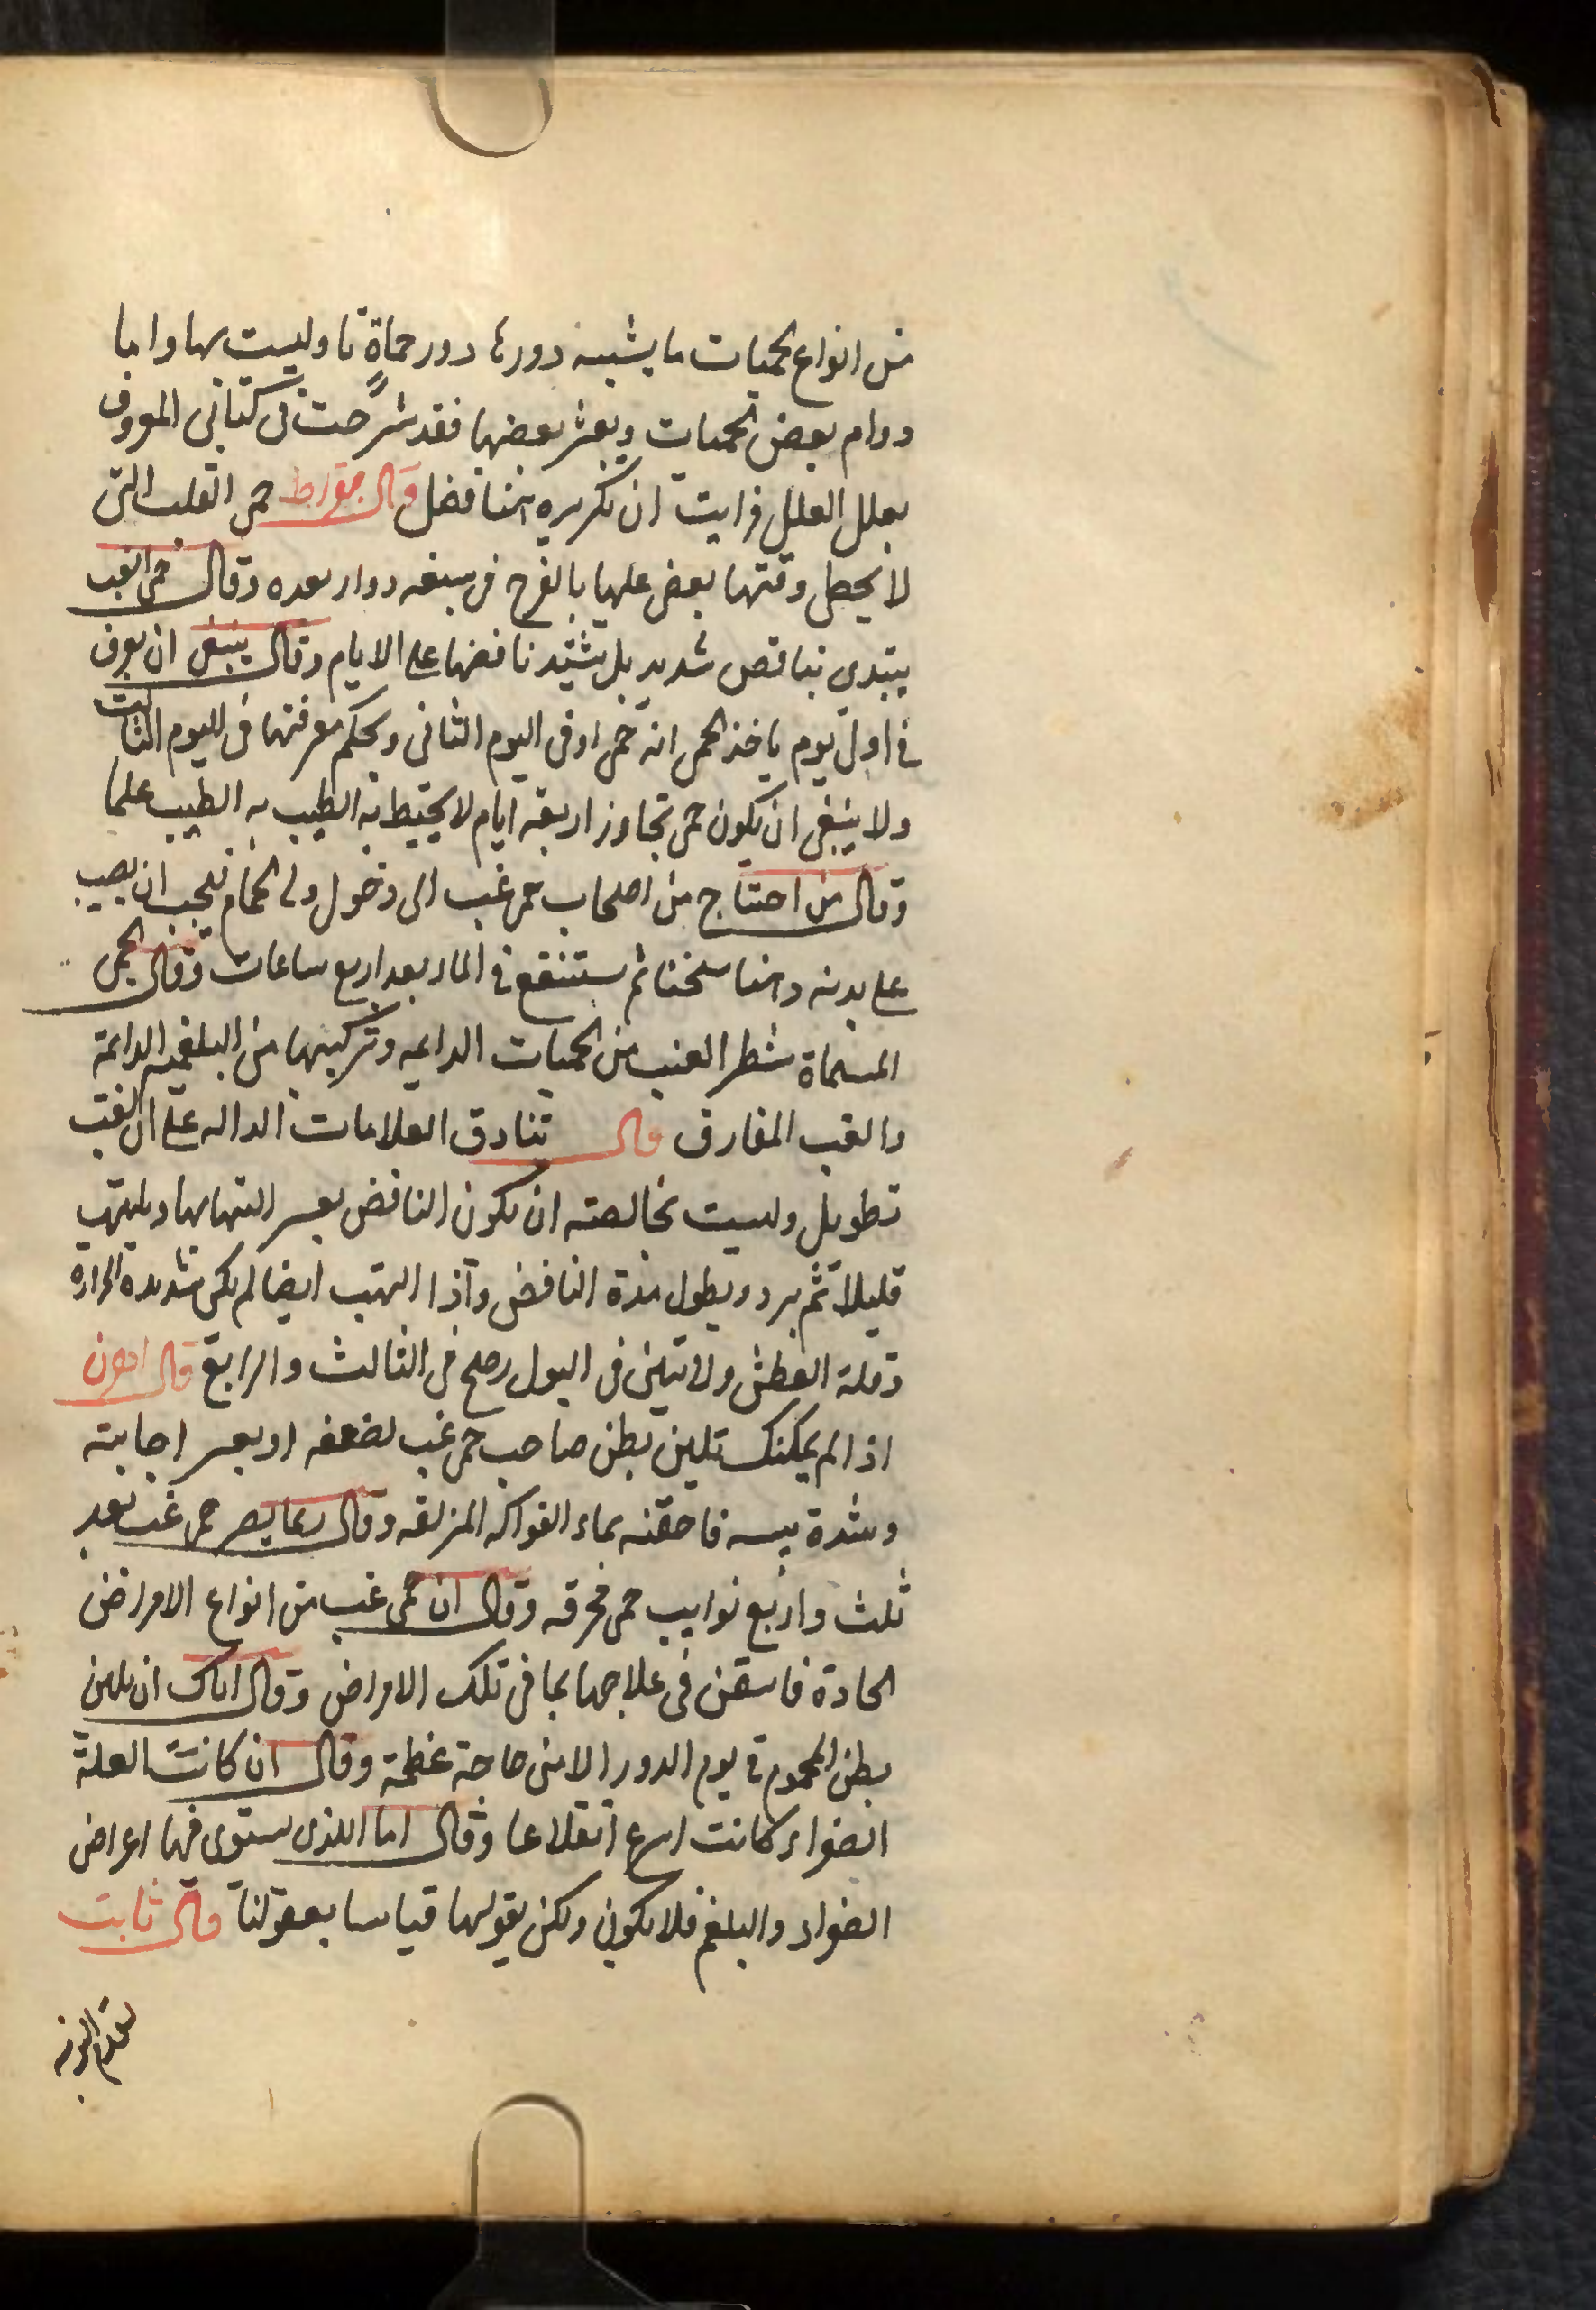 من انواع الحميات ما يشبه دورها دور حماة نا وليست بها واما
دوام بعض الحميات وبعثر بعضها فقد شرحت فى كتابى المعروف
بعلل العلل فرايت ان نكريره هنا فضل قال بقراط حمى القلب التى
لا يحصل وقتها بعض عليها بالفرح فى سبعه دوار بعده وقال حمى الغب
يبتدى بناقص شديد بل يشتد نافضها على الايام وقال ينبغى ان يعرف
فى اول يوم ياخذ الحمى انه حمى او فى اليوم الثانى ويحكم معرفتها فى اليوم الثالث
ولا ينبغى ان يكون حمى تجاوز اربعة ايام لا يحيط به الطيب به الطبيب علما
وقال من احتاج من اصحاب حمى غب الى دخول ولى الحمام فيجب ان يصب
على بدنه دهنا سخنا ثم يستنقع فى الماء بعد اربع ساعات وقال الحمى
المسماة شطر العنب من الحميات الدايمه وتركيبها من البلغميه الدائمة
والغب المفارق قال تنادق العلامات الداله على ان الغب
تطويل وليست بخالصته ان يكون النافض بعسر التهابها ويلتهب
قليلا ثم برد ويطول مدة النافض واذا التهب ايضا لم يكن شديدة الحرارة
وقلة العطش ولا يتبين فى البول رصح فى الثالث والرابع قال اهرن
اذا لم يمكنك تليين بطن صاحب حمى غب لضعفه او بعسر اجابته
وشدة يبسه فاحقنه بماء الفواكه المزلقه وقال ربما يصر حمى غب بعد
ثلث واربع نوايب حمى محرقه وقال ان حمى غب من انواع الامراض
الحادة فاستقن فى علاجها بما فى تلك الامراض وقال اياك ان تلين
بطن المحموم فى يوم الدور الا من حاجة عظيمة وقال ان كانت العلة
الصفراء كانت اسرع انقلاعا وقال اما اللذى يستوى فيها اعراض
الصفراء والبلغم فلا يكون ولكن يقولها قياسا بعقولنا قال ثابت